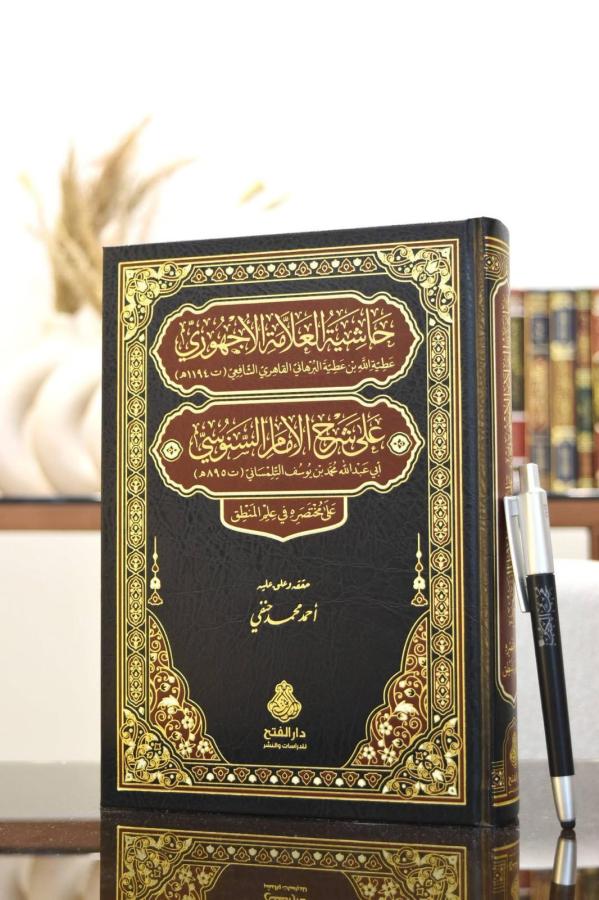 حَاشِيَةُ العَلَّامَةِ الأُجْهُورِيِّ
عَطِيَّةِ اللهِ بنِ عَطِيَّةَ البُرْهَانِيِّ القَاهِرِيِّ الشَّافِعِيِّ (ت ١١٩٤هـ)
عَلَى شَرْحِ الإمَامِ السَّنُوسِيِّ
أبي عبد الله محمّد بن يُوسُف التِّلِمْسَانيّ (ت ٨٩٥هـ)
عَلَى مُخْتَصَرِهِ فِي عِلْمِ المَنْطِقِ
حققه وعلق عليه
أحمد محمد حنفي
دار الفتح
للدراسات والنشر